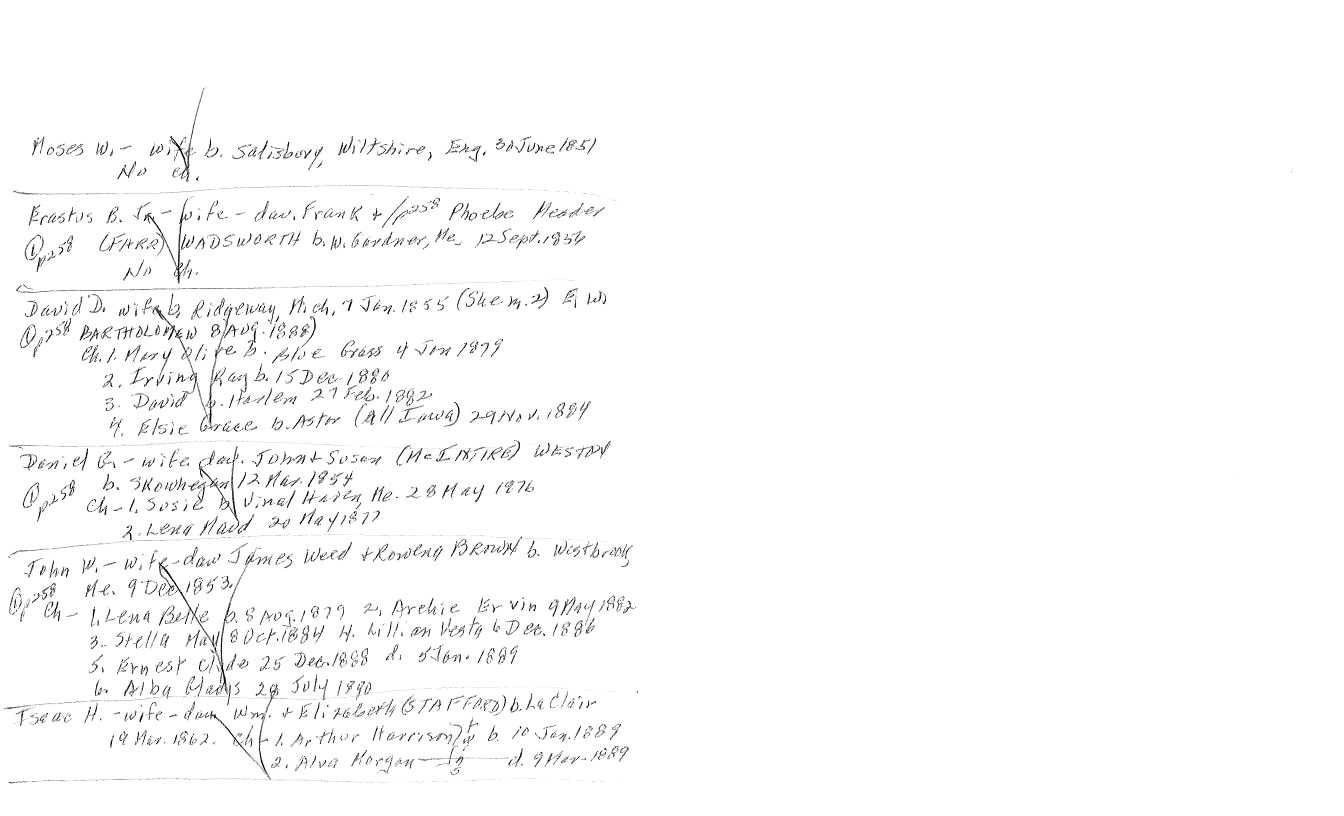 Moses W. - wife b. Salisbury, Wiltshire, Eng. 30 June 1851
No ch.
Erastus B. Jr. - wife - dau. Frank + /p258 Phoebe Meader
① p258 (FARR) WADSWORTH b. W. Gardner, Me. 12 Sept. 1856
No Ch.
David D. wife b. Ridgeway, Mich, 7 Jan. 1855 (She m. 2) E. W.
① p258 BARTHOLOMEW 8 AUG. 1888)
Ch. 1. Mary Olive b. Blue Grass 4 Jan 1879
2. Irving Ray b. 15 Dec 1880
3. David b. Harlem 27 Feb. 1882
4. Elsie Grace b. Astor (All Iowa) 29 Nov. 1884
Daniel G. - wife dau. John + Susan (McINTIRE) WESTON
① p258 b. Skowhegan 12 Mar. 1854
Ch - 1. Susie b. Vinal Haven, Me. 28 May 1876
2. Lena Maud 20 May 1877
John W. - wife - dau James Weed + Rowena BROWN b. Westbrook
① p258 Me. 9 Dec 1853.
Ch - 1. Lena Belle b. 8 Aug. 1879 2. Archie Ervin 9 May 1882
3. Stella May 8 Oct. 1884 4. Lillian Vesta 6 Dec. 1886
5. Ernest Clyde 25 Dec. 1888 d. 5 Jan. 1889
6. Alba Gladys 28 July 1890
Isaac H. - wife - dau Wm. + Elizabeth (STAFFORD) b. LeClair
19 Mar. 1862. Ch - 1. Arthur Harrison b. 10 Jan. 1889
2. Alva Morgan d. 9 Mar. 1889